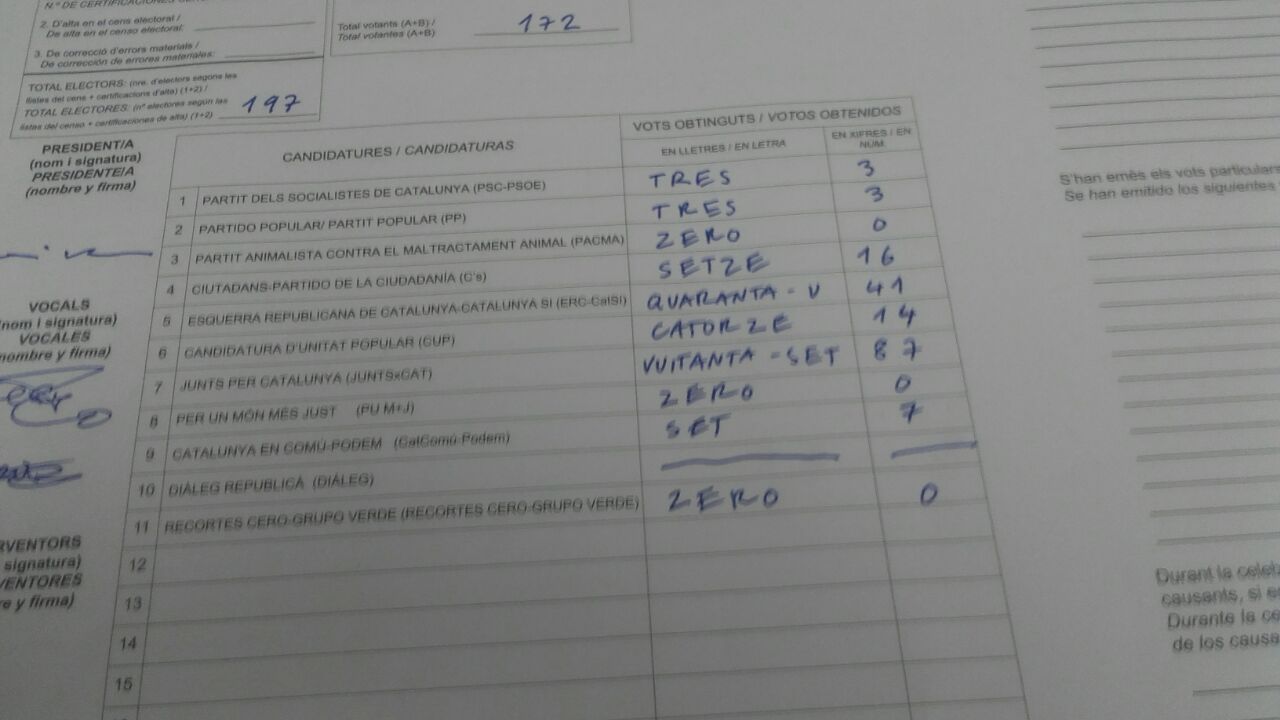 2. D'alta en el cens electoral /
De alta en el censo electoral:
3. De correcció d'errors materials /
De corrección de errores materiales:
TOTAL ELECTORS: (nre. d'electors segons les
llistes del cens + certificacions d'alta) (1+2) /
TOTAL ELECTORES: (nº electores según las
listas del censo + certificaciones de alta) (1+2)
197
Total votants (A+B) /
Total votantes (A+B)
172
PRESIDENT/A
(nom i signatura)
PRESIDENTE/A
(nombre y firma)
VOCALS
(nom i signatura)
VOCALES
(nombre y firma)
RVENTORS
signatura)
VENTORES
re y firma)
CANDIDATURES / CANDIDATURAS
VOTS OBTINGUTS / VOTOS OBTENIDOS
EN LLETRES / EN LETRA
EN XIFRES / EN NÚM.
1 PARTIT DELS SOCIALISTES DE CATALUNYA (PSC-PSOE) TRES 3
2 PARTIDO POPULAR/ PARTIT POPULAR (PP) TRES 3
3 PARTIT ANIMALISTA CONTRA EL MALTRACTAMENT ANIMAL (PACMA) ZERO 0
4 CIUTADANS-PARTIDO DE LA CIUDADANÍA (C's) SETZE 16
5 ESQUERRA REPUBLICANA DE CATALUNYA-CATALUNYA SI (ERC-CatSI) QUARANTA - U 41
6 CANDIDATURA D'UNITAT POPULAR (CUP) CATORZE 14
7 JUNTS PER CATALUNYA (JUNTSxCAT) VUITANTA - SET 87
8 PER UN MÓN MÉS JUST (PU M+J) ZERO 0
9 CATALUNYA EN COMÚ-PODEM (CatComú-Podem) SET 7
10 DIÀLEG REPUBLICÀ (DIÀLEG)
11 RECORTES CERO-GRUPO VERDE (RECORTES CERO-GRUPO VERDE) ZERO 0
12
13
14
15
S'han emès els vots particulars
Se han emitido los siguientes
Durant la celeb
causants, si e
Durante la ce
de los causa